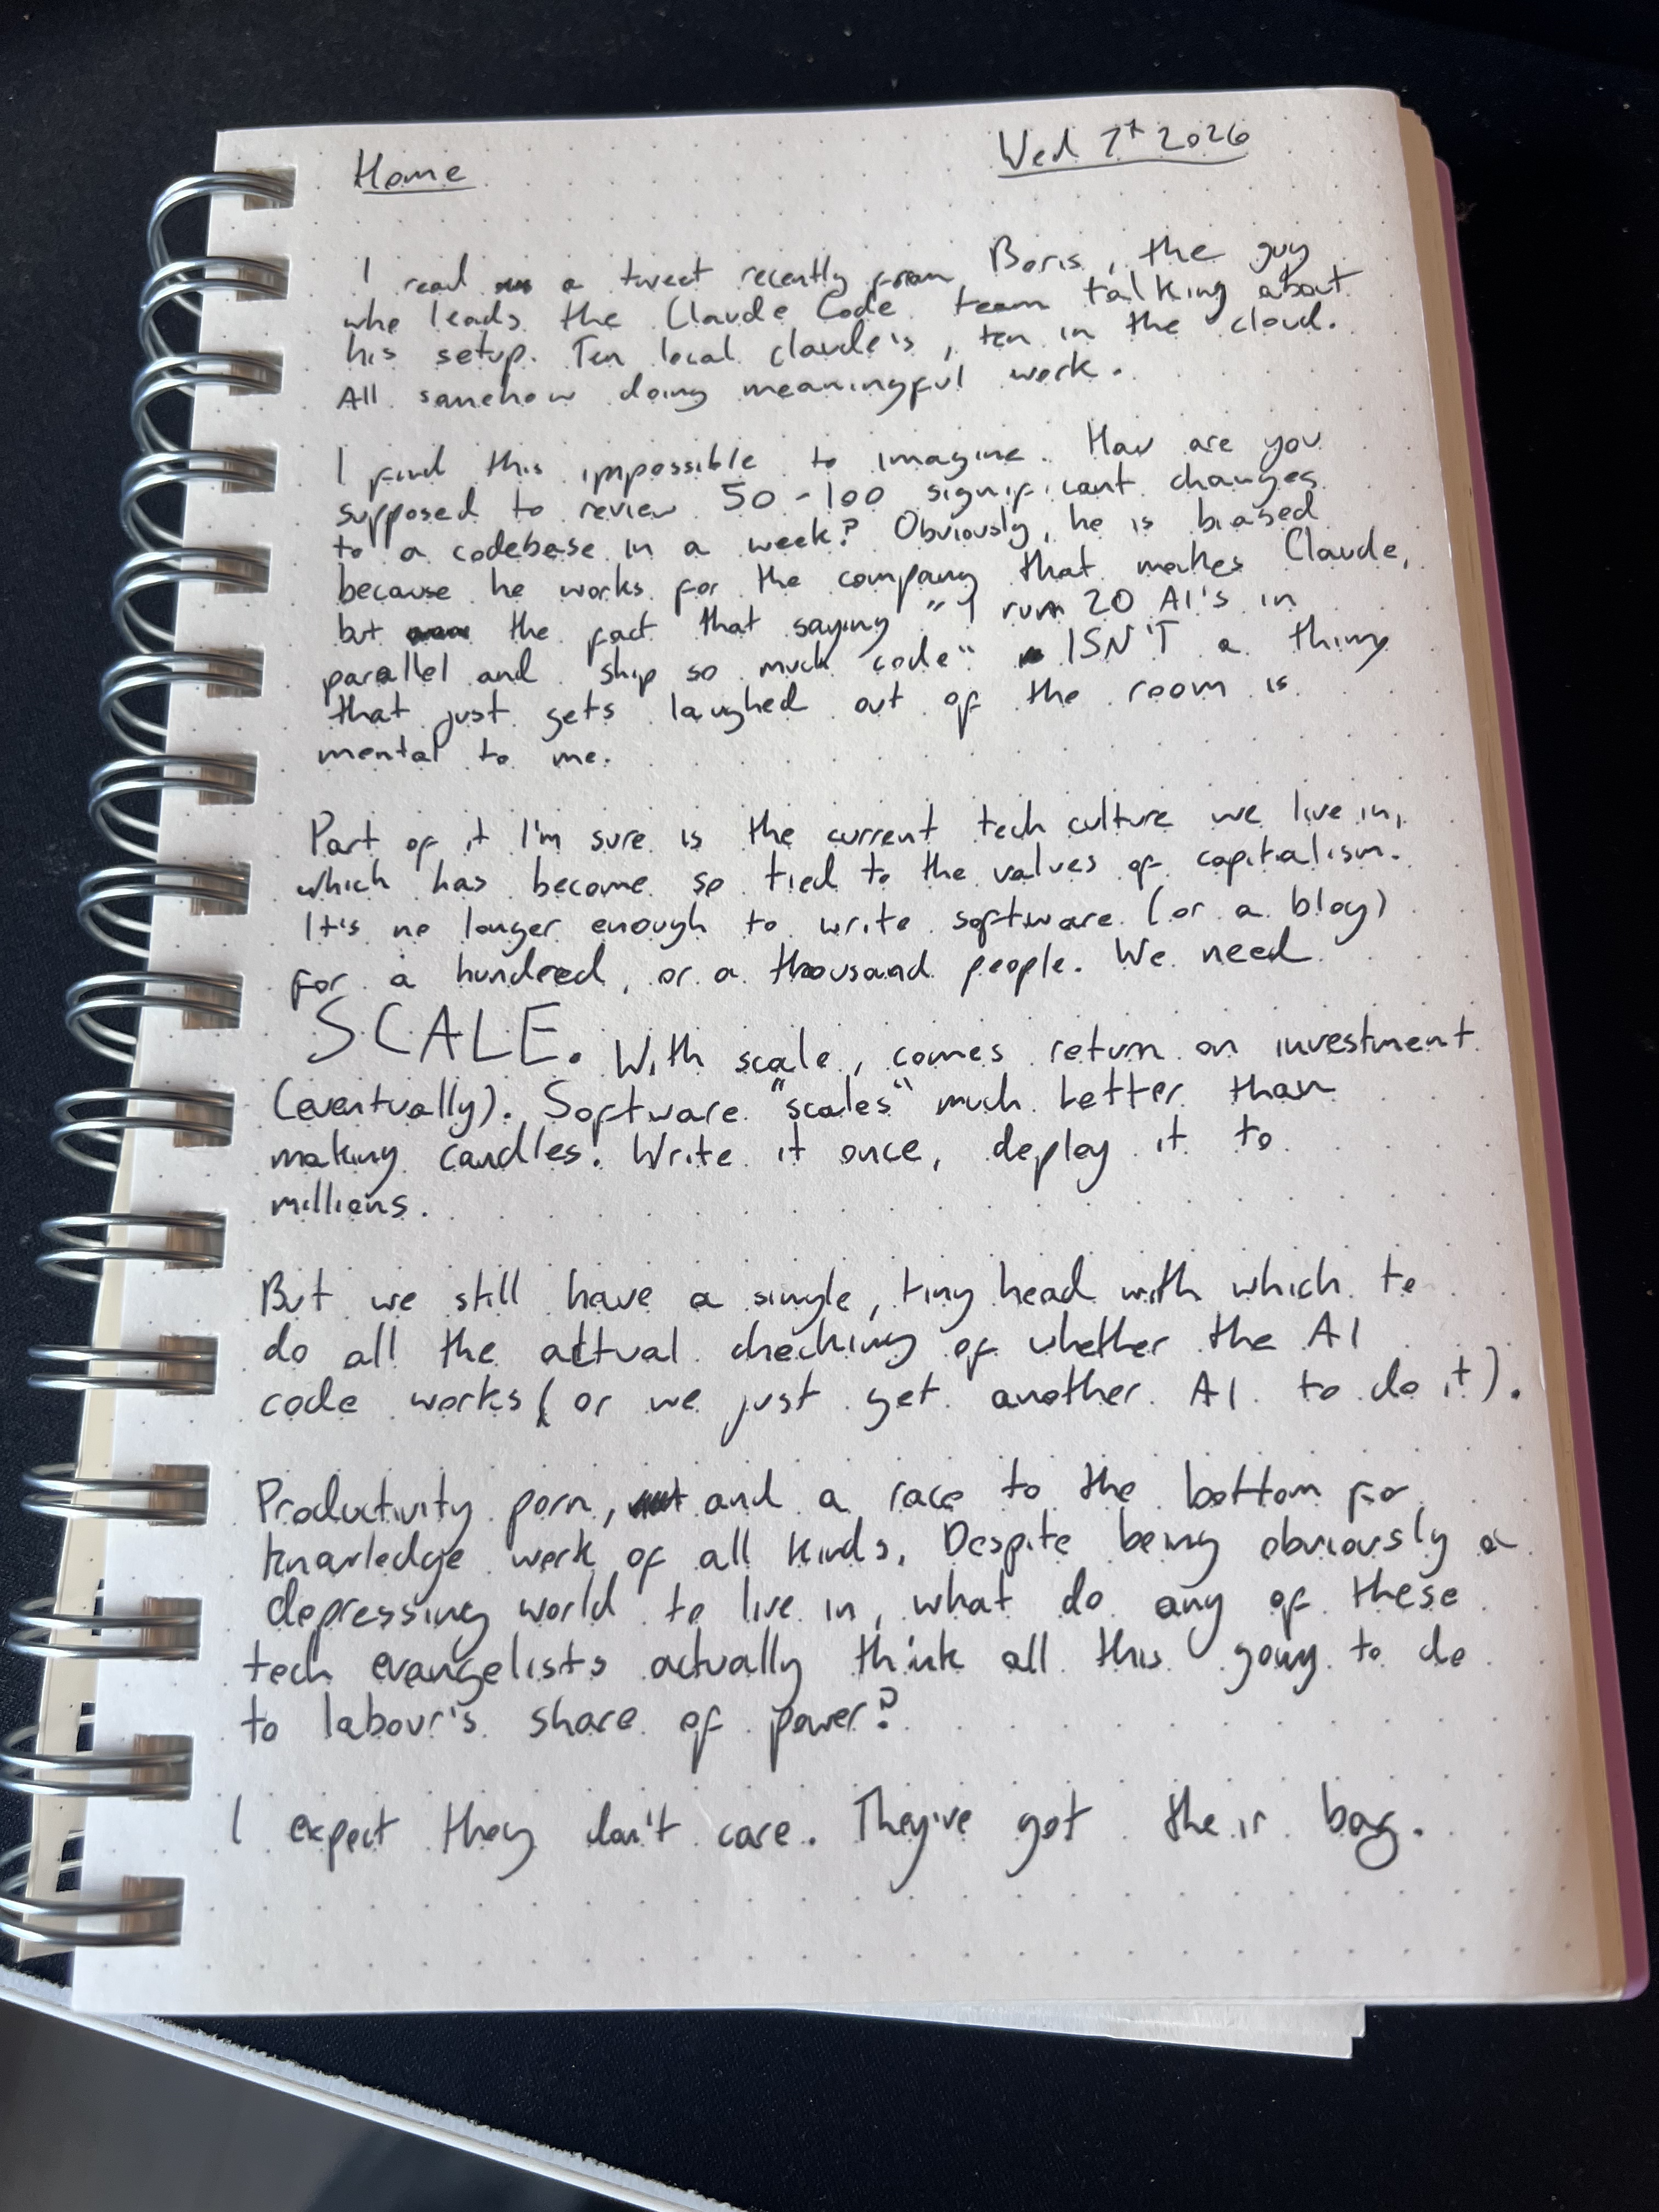 Home
Wed 7th 2026
I read a tweet recently from Boris, the guy
who leads the Claude Code team talking about
his setup. Ten local claude's, ten in the cloud.
All somehow doing meaningful work.
I find this impossible to imagine. How are you
supposed to review 50-100 significant changes
to a codebase in a week? Obviously, he is biased
because he works for the company that makes Claude,
but the fact that saying "I run 20 AI's in
parallel and ship so much code" ISN'T a thing
that just gets laughed out of the room is
mental to me.
Part of it I'm sure is the current tech culture we live in,
which has become so tied to the values of capitalism.
It's no longer enough to write software (or a blog)
for a hundred, or a thousand people. We need
SCALE. With scale, comes return on investment
(eventually). Software "scales" much better than
making candles. Write it once, deploy it to
millions.
But we still have a single, tiny head with which to
do all the actual checking of whether the AI
code works (or we just get another AI to do it).
Productivity porn, and a race to the bottom for
knowledge work of all kinds. Despite being obviously a
depressing world to live in, what do any of these
tech evangelists actually think all this going to do
to labour's share of power?
I expect they don't care. They've got their bag.